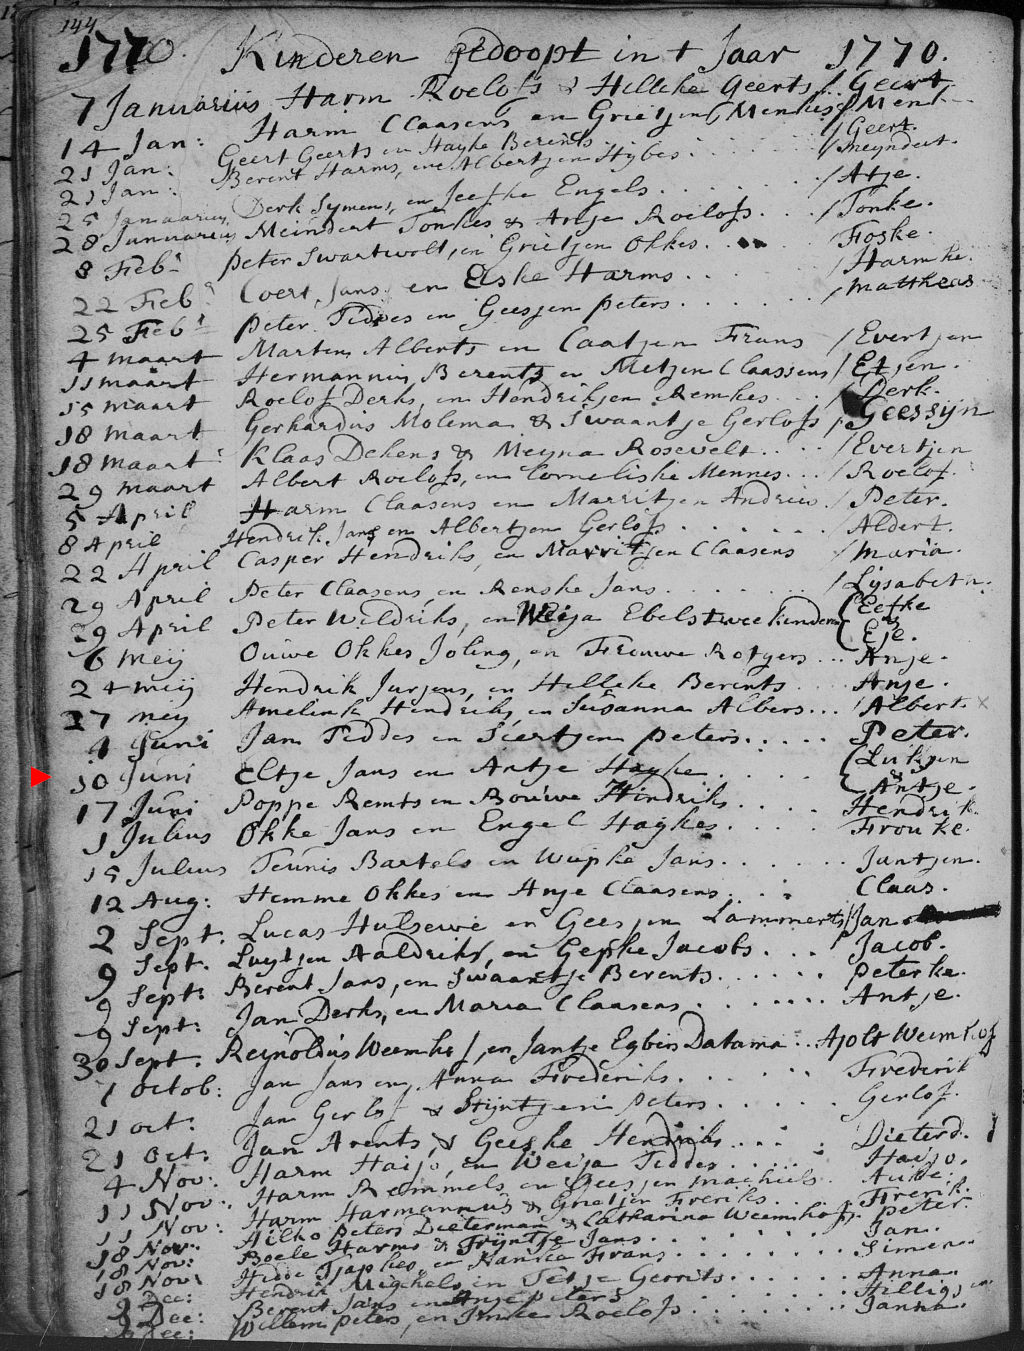 144
1770. Kinderen gedoopt in t Jaar 1770.
7 Januariüs Harm Roelofs & Hilleke Geerts / Geert
14 Jan: Harm Claasens en Grietjen Menkes / Menk
21 Jan: Geert Geerts en Hayke Berents / Geert.
21 Jan: Berent Harms, en Albertjen Hijbes / Meyndert.
25 Januarius Derk Symens, en Jeefke Engels / Atje.
28 Januarius Meindert Tonkes & Antje Roelofs / Tonke.
8 Feb: Peter Swartwolt, en Grietjen Okkes / Foske.
22 Feb: Coert Jans en Elske Harms / Harmke.
25 Feb: Peter Tiddes en Geesjen Peters / Mattheas
4 Maart Marten Alberts en Caatjen Frans / Evertjen
11 maart Hermannus Berents en Metjen Claassens / Etjen.
15 maart Roelof Derks, en Hendrikjen Remkes / Derk.
18 maart Gerhardus Molema & Swaantje Gerlofs / Geessijn
18 maart Klaas Dekens & Meyna Rosevelt / Evertjen
29 maart Albert Roelofs, en Corneliske Mennes / Roelof.
5 April Harm Claasens en Marritjen Andries / Peter.
8 April Hendrik Jans en Albertjen Gerlofs Aldert.
22 April Casper Hendriks, en Marritjen Claasens / Maria.
29 April Peter Claasens, en Renske Jans / Lijsabeth.
29 April Peter Wildriks, en Weija Ebels twee kinderen { Eefke
& Eje.
6 Meij Ouwe Okkes Joling, en Frouwe Rotgers ... Anje.
24 meij Hendrik Jurjens, en Hilleke Berents Anje.
27 meij Amelink Hendriks, en Susanna Albers ... Albert. x
4 Juni Jan Tiddes en Siertjen Peters Peter.
10 Juni Eltje Jans en Antje Hayke { Lukjen
& Antje.
17 Juni Poppe Remts en Bouwe Hindriks Hendrik.
1 Julius Okke Jans en Engel Haykes Frouke.
15 Julius Teunis Bartels en Wupke Jans Jantjen.
12 Aug: Hemme Okkes en Anje Claasens Claas.
2 Sept. Lucas Hulsewe en Geesjen Lammerts / Jan
9 Sept. Luytjen Aaldriks, en Gepke Jacobs Jacob.
9 Sept: Berent Jans, en Swaantje Berents Peterke.
9 Sept: Jan Derks, en Maria Claasens Antje.
30 Sept. Reijnoldus Weemhof, en Jantje Egberts Datema Ajolt Weemhof
7 Octob: Jan Jans en Anna Frederiks Frederik
21 oct: Jan Gerlof & Stijntjen Peters Gerlof.
21 Oct: Jan Arents, & Geeske Hendriks Dieterd.
4 Nov: Harm Haijo, en Weija Tiddes Haijo.
11 Nov: Harm Remmels, en Geesjen Machiels Auke.
11 Nov: Harm Harmannus & Grietjen Freriks Frerik.
18 Nov: Ailko Peters Dieterman & Catharina Weemhof Peter.
18 Nov: Boele Harms & Trijntje Jans Jan.
18 Nov: Hidde Tjapkes, en Hanska Frans Simen
2 Dec: Hendrik Michels, en Tetje Gerrits Anna.
Dec: Berent Jans en Anje Peters Hilligjen
Dec: Willem Peters, en Imke Roelofs Janna.